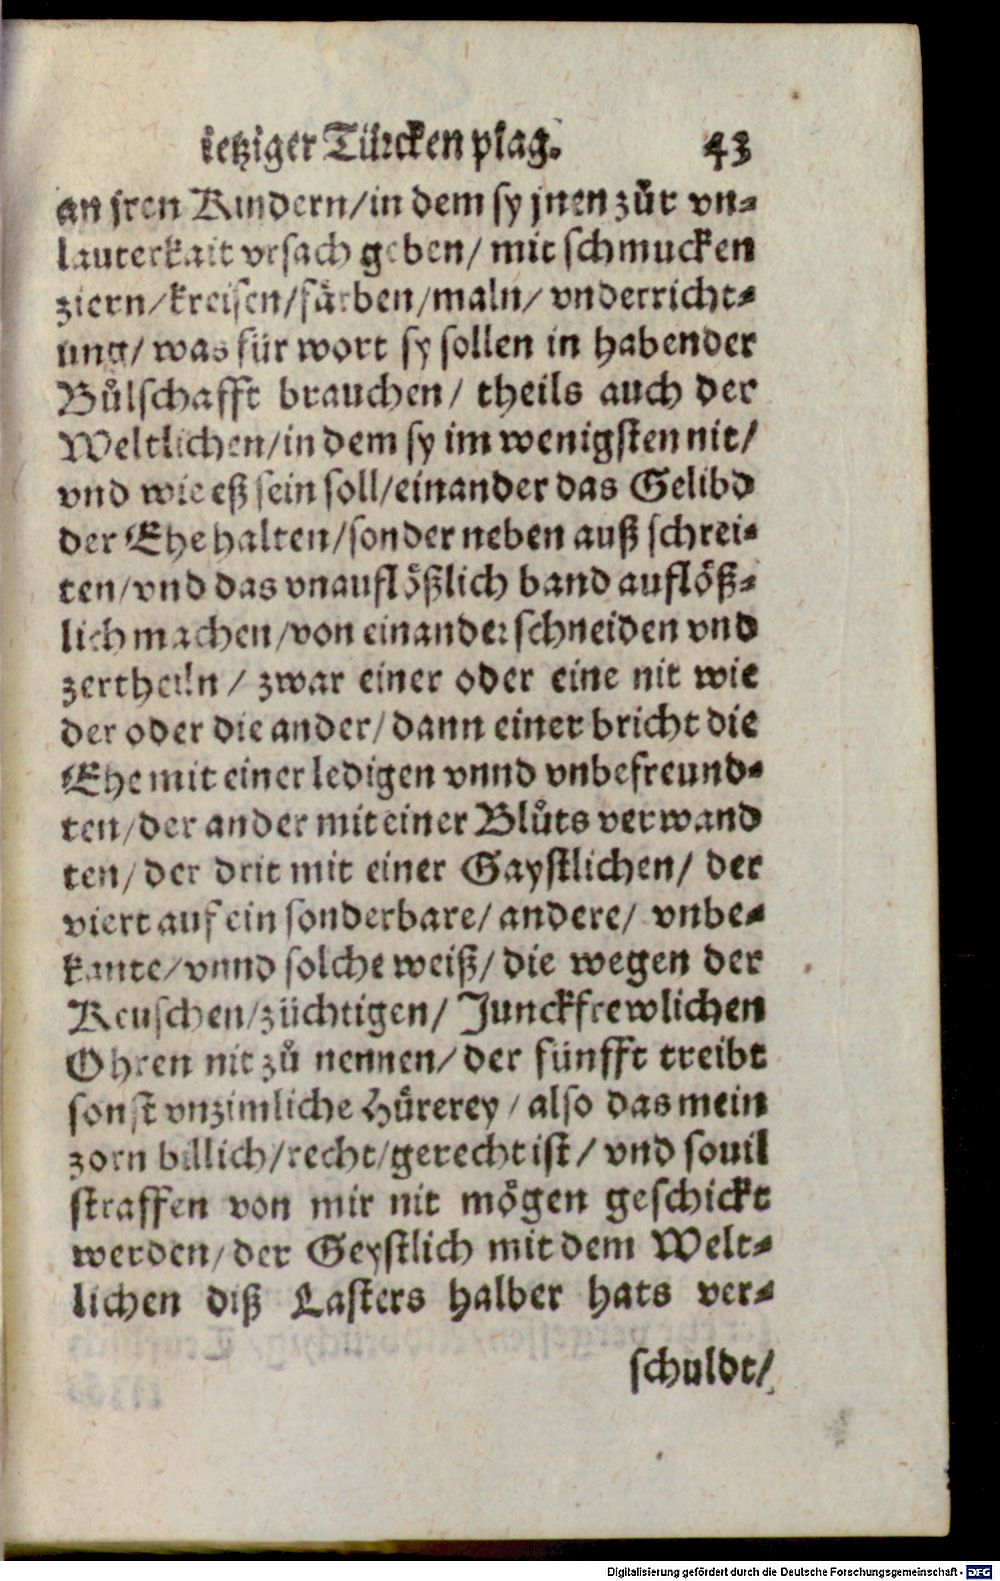 ietziger Türcken plag. 43
an jren Kindern/in dem sy jnen zůr vn-
lauterkait vrsach geben/ mit schmucken
ziern/kreisen/färben/maln/ vnderricht-
ung/ was für wort sy sollen in habender
Bůlschafft brauchen/ theils auch der
Weltlichen/in dem sy im wenigsten nit/
vnd wie eß sein soll/einander das Gelibd
der Ehe halten/sonder neben auß schrei-
ten/vnd das vnauflößlich band auflöß-
lich machen/von einander schneiden vnd
zertheiln / zwar einer oder eine nit wie
der oder die ander/dann einer bricht die
Ehe mit einer ledigen vnnd vnbefreund-
ten/der ander mit einer Blůts verwand
ten/der drit mit einer Gaystlichen/ der
viert auf ein sonderbare/andere/ vnbe-
kante/vnnd solche weiß/die wegen der
Keuschen/züchtigen/ Junckfrewlichen
Ohren nit zů nennen/der fünfft treibt
sonst vnzimliche Hůrerey/also das mein
zorn billich/recht/gerecht ist/ vnd souil
straffen von mir nit mögen geschickt
werden/der Geystlich mit dem Welt-
lichen diß Lasters halber hats ver-
schuldt/
Digitalisierung gefördert durch die Deutsche Forschungsgemeinschaft - DFG